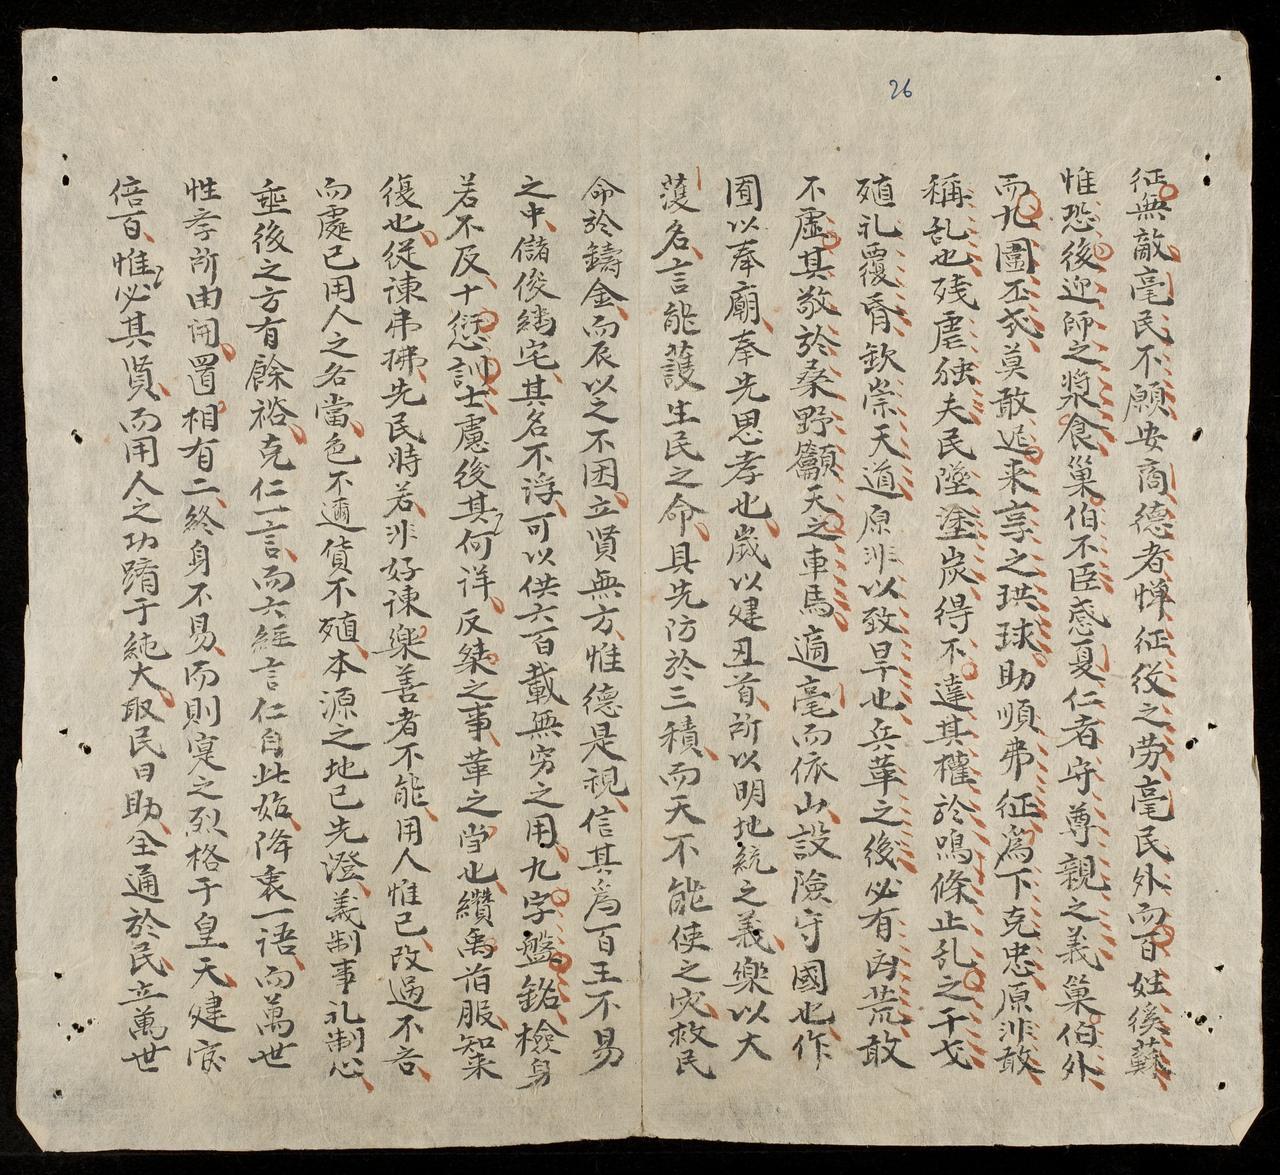 26
征無敵亳民不願安商德者惮征役之劳亳民外而百姓徯蘇
惟恐後迎師之漿食巢伯不臣感夏仁者守尊親之義巢伯外
而九圍丕式莫敢遅来享之珙球助順弗征爲下克忠原非敢
稱乱也残虐独夫民墜塗炭得不達其權於鳴條止乱之干戈
殖礼覆昏欽崇天道原非以致旱也兵革之後必有凶荒敢
不虛其敬於桑野籲天之車馬適亳而依山設險守國也作
囿以奉廟奉先思孝也嵗以建丑首所以明地統之義樂以大
頀名言能護生民之命具先防於三積而天不能使之灾救民
命於鑄金而辰以之不困立賢無方惟德是視信其爲百王不易
之中儲俊繕宅其名不浮可以供六百載無穷之用九字盤銘檢身
若不及十愆訓士慮後其何详反桀之事革之当也纘禹旧服知来
復也從諌弗拂先民時若非好諌樂善者不能用人惟己改過不吝
而處己用人之各當色不邇貨不殖本源之地已先澄義制事礼制心
垂後之方有餘裕克仁一言而六經言仁自此始降衷一語而萬世
性孝所由闻置相有二終身不易而則寔之烈格于皇天建官
倍百惟必其賢而用人之功躋于純大取民曰助全通於民立萬世